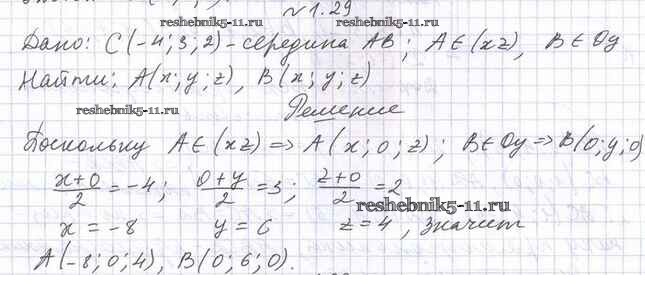 reshebnik5-11.ru
№1.29
reshebnik5-11.ru
Дано: C(-4; 3; 2) - середина AB; A∈(xz), B∈Oy
Найти: A(x; y; z), B(x; y; z)
reshebnik5-11.ru
Решение
Поскольку A∈(xz) => A(x; 0; z); B∈Oy => B(0; y; 0)
(x+0)/2 = -4; (0+y)/2 = 3; (z+0)/2 = 2
reshebnik5-11.ru
x = -8 y = 6 z = 4, значит
A(-8; 0; 4), B(0; 6; 0).